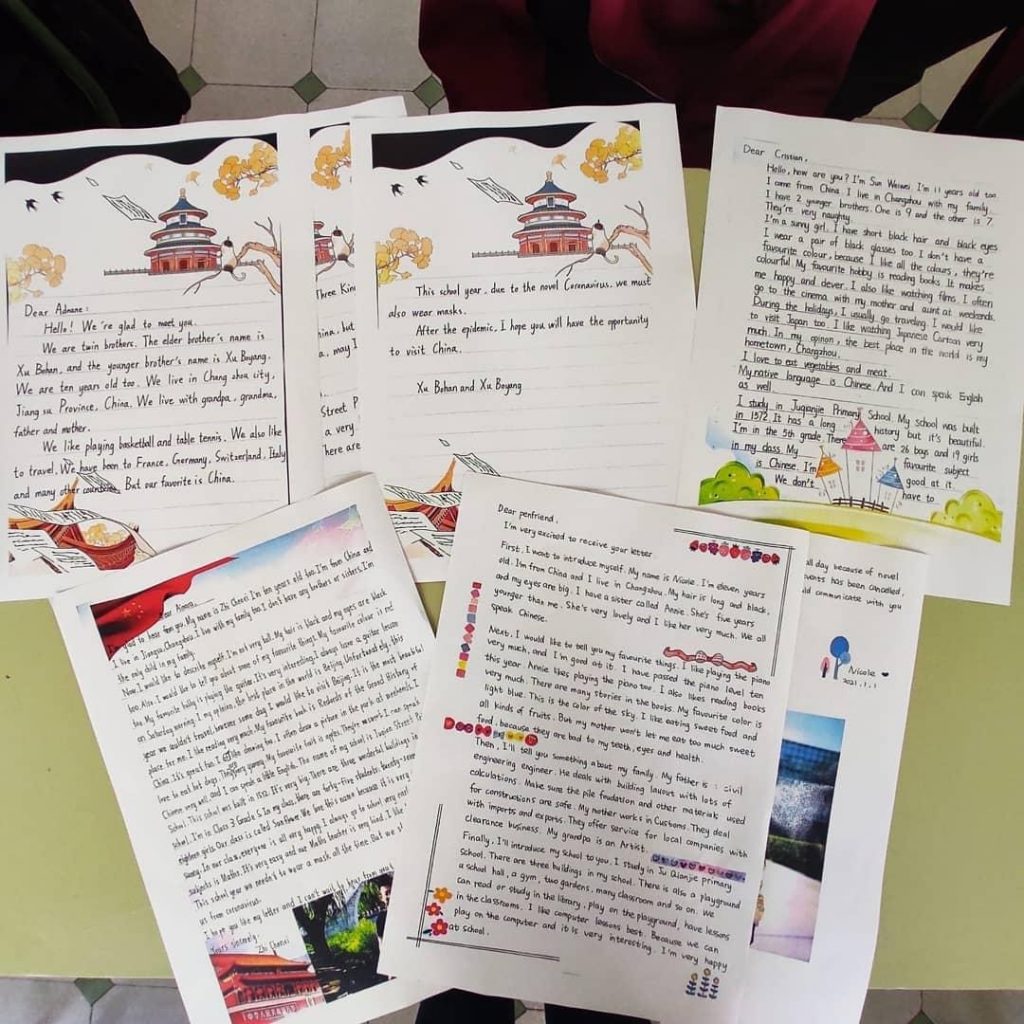 Dear Adnane:
Hello! We're glad to meet you.
We are twin brothers. The elder brother's name is
Xu Bohan, and the younger brother's name is Xu Boyang.
We are ten years old too. We live in Chang zhou city,
Jiang su Province, China. We live with grandpa, grandma,
father and mother.
We like playing basketball and table tennis. We also like
to travel. We have been to France, Germany, Switzerland, Italy
and many other countries. But our favorite is China.
Three Kin
hina, but
a, may I
Street P
a very
here are
This school year, due to the novel Coronavirus, we must
also wear masks.
After the epidemic, I hope you will have the opportunity
to visit China.
Xu Bohan and Xu Boyang
Dear Cristian,
Hello, how are you? I'm Sun Weiwei. I'm 11 years old too
I come from China. I live in Changzhou with my family.
I have 2 younger brothers. One is 9 and the other is 7.
They're very naughty.
I'm a sunny girl. I have short black hair and black eyes
I wear a pair of black glasses too. I don't have a
favourite colour, because I like all the colours, they're
colourful. My favourite hobby is reading books. It makes
me happy and clever. I also like watching films. I often
go to the cinema with my mother and aunt at weekends.
During the holidays, I usually go traveling. I would like
to visit Japan too. I like watching Japanese Cartoon very
much. In my opinon, the best place in the world is my
hometown, Changzhou.
I love to eat vegetables and meat.
My native language is Chinese. And I can speak English
as well
I study in Juqianjie Primary School. My school was built
in 1572. It has a long history but it's beautiful.
I'm in the 5th grade. There are 26 boys and 19 girls
in my class. My favourite subject
is Chinese. I'm good at it.
We don't have to
Dear Aimara
glad to hear from you. My name is Zhi Chenxi. I'm ten years old too. I'm from China and
I live in Jiangsu, Changzhou. I live with my family too. I don't have any brothers or sisters. I'm
the only child in my family.
Now I would like to describe myself. I'm not very tall. My hair is black and my eyes are black
too. Also, I would like to tell you about some of my favourite things. My favourite colour is red
too. My favourite hobby is playing the guitar. It's very interesting. I always have a guitar lesson
on Saturday morning. In my opinion, the best place in the world is Beijing. Unfortunately, this
year we couldn't travel, however some day I would like to visit Beijing. It is the most beautiful
place for me. I like reading very much. My favourite book is Records of the Grand History of
China. It's great fun. I like drawing too. I often draw a picture in the park at weekends. I
love to eat hot dogs. They're yummy. My favourite fruit is apple. They're sweet. I can speak
Chinese very well and I can speak a little English. The name of my school is Juqian Street Pr
School. This school was built in 1572. It's very big. There are three wonderful buildings in
school. I'm in Class 3 Grade 5. In my class, there are forty-five students: twenty-seven
eighteen girls. Our class is called Sunflower. We love this name because it is very
sunny. In our class, everyone is all very happy. I always go to school very
subjects is Maths. It's very easy and our Maths teacher is very kind. I like
This school year we needn't to wear a mask all the time. But we
us from coronavirus.
I hope you like my letter and I can't wait to hear from you
Yours sincerely:
Zhi Chenxi
Dear penfriend,
I'm very excited to receive your letter
First, I want to introduce myself. My name is Nicole. I'm eleven years
old. I'm from China and I live in Changzhou. My hair is long and black,
and my eyes are big. I have a sister called Annie. She's five years
younger than me. She's very lovely and I like her very much. We all
speak Chinese.
Next, I would like to tell you my favourite things. I like playing the piano
very much, and I'm good at it. I have passed the piano level ten
this year. Annie likes playing the piano too. I also likes reading books
very much. There are many stories in the books. My favourite color is
light blue. This is the color of the sky. I like eating sweet food and
all kinds of fruits. But my mother won't let me eat too much sweet
food, because they are bad to my teeth, eyes and health.
Then, I'll tell you something about my family. My father is : civil
engineering engineer. He deals with building layout with lots of
calculations. Make sure the pile foudation and other materials used
for constructions are safe. My mother works in Customs. They deal
with imports and exports. They offer service for local companies with
clearance business. My grandpa is an Artist.
Finally, I'll introduce my school to you. I study in Ju Qianjie primary
School. There are three buildings in my school. There is also a playground
a school hall, a gym, two gardens, many classroom and so on. We
can read or study in the library, play on the playground, have lessons
in the classrooms. I like computer lessons best. Because we can
play on the computer and it is very interesting. I'm very happy
at school.
all day because of novel
vents has been cancelled,
ld communicate with you
Nicole
2021.1.1